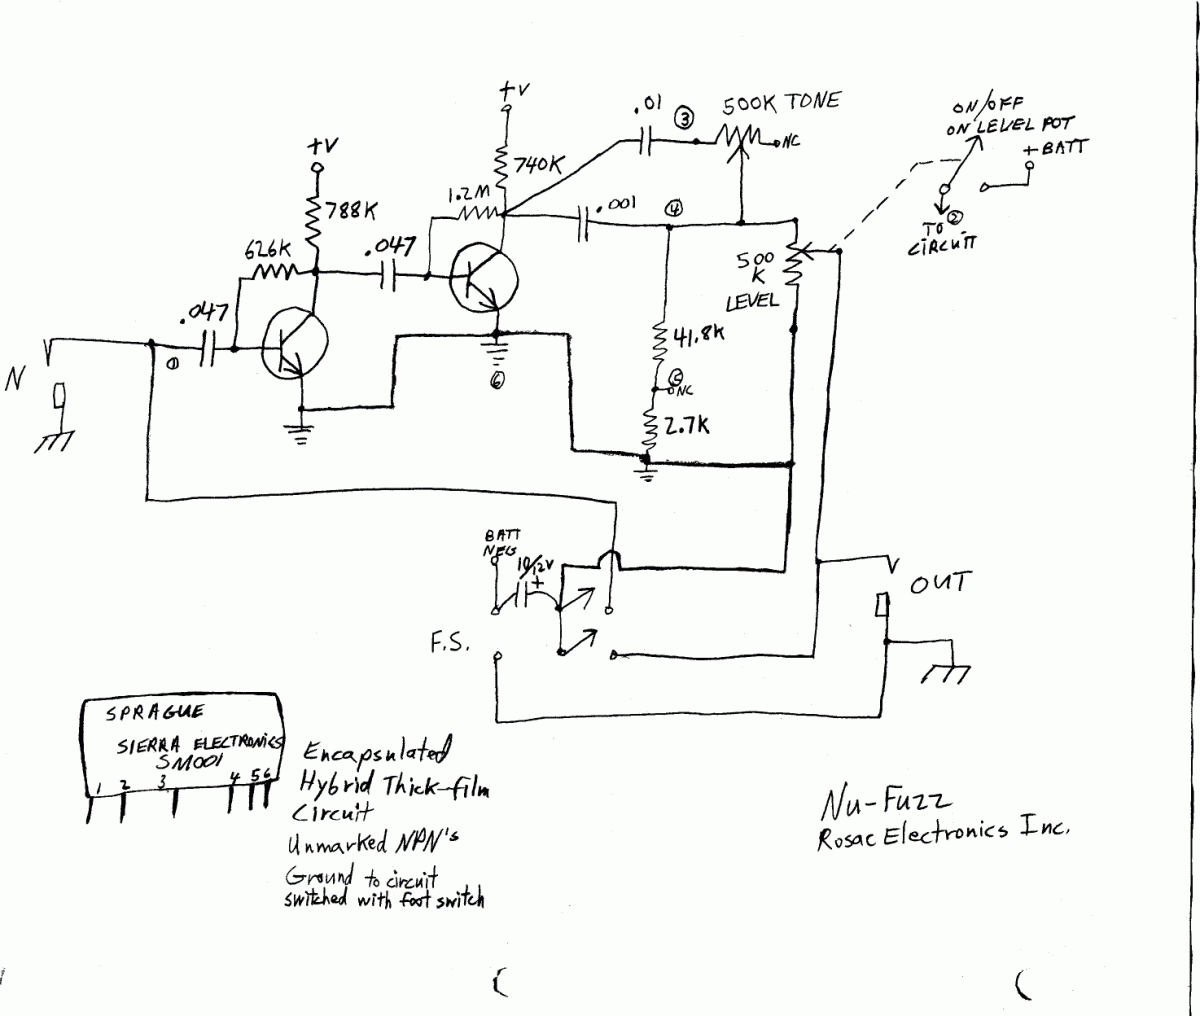 +V
.01
③
500K TONE
NC
ON/OFF
ON LEVEL POT
+ BATT
②
TO
CIRCUIT
+V
740K
1.2M
788K
.001
④
626K
.047
500
K
LEVEL
.047
①
41.8K
N
⑥
⑤
NC
2.7K
BATT
NEG
10/12V
+
OUT
F.S.
SPRAGUE
SIERRA ELECTRONICS
SM001
1 2 3 4 5 6
Encapsulated
Hybrid Thick-film
Circuit
Unmarked NPN's
Ground to circuit
switched with foot switch
Nu-Fuzz
Rosac Electronics Inc.